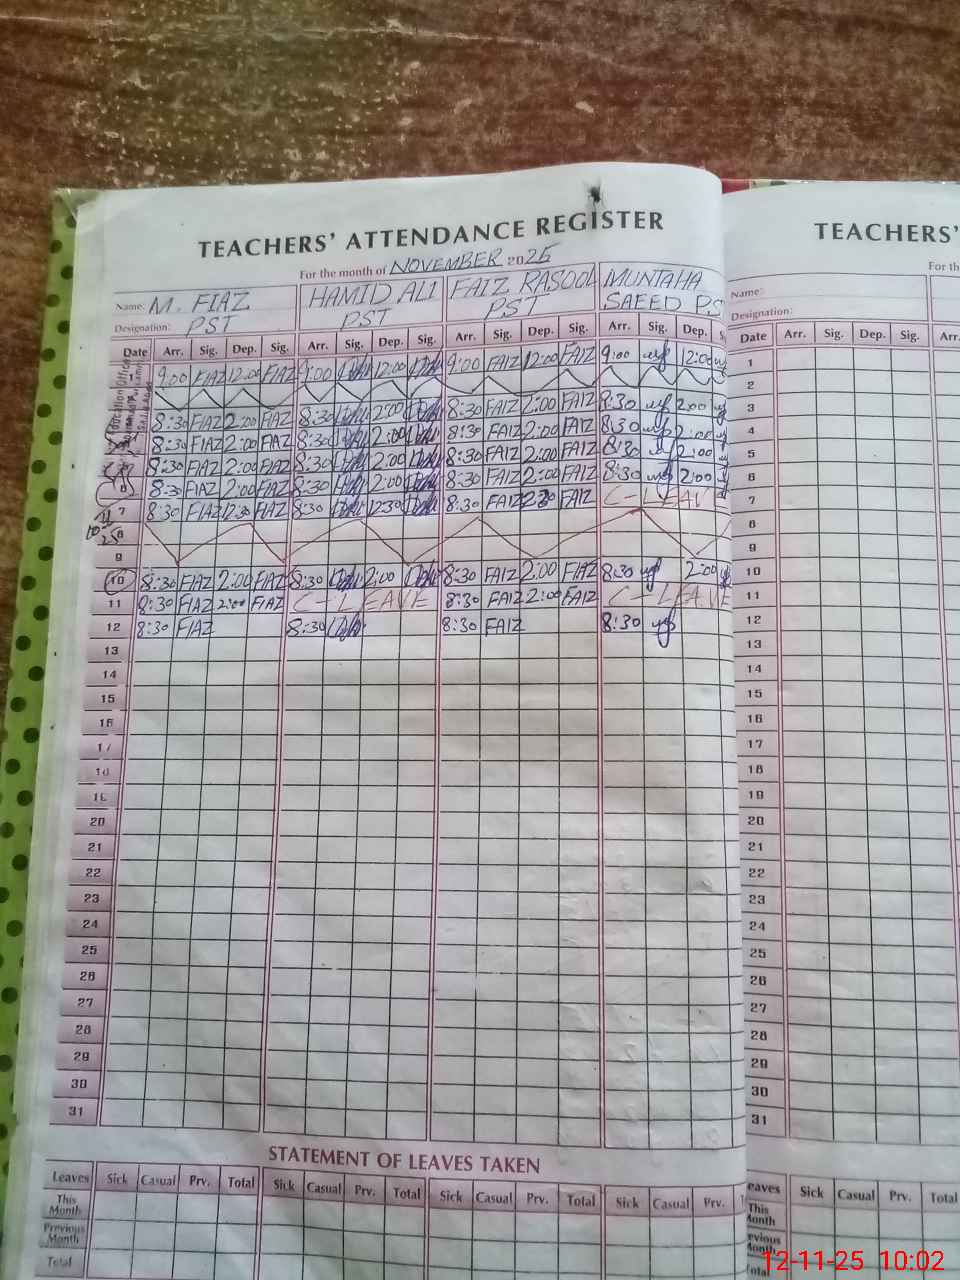 TEACHERS' ATTENDANCE REGISTER
TEACHERS'
For the month of NOVEMBER 2025
For th
Name: M. FIAZ HAMID ALI FAIZ RASOOL MUNTAHA
Designation: PST PST PST SAEED PS
Name:
Designation:
Date Arr. Sig. Dep. Sig. Arr. Sig. Dep. Sig. Arr. Sig. Dep. Sig. Arr. Sig. Dep. S
Date Arr. Sig. Dep. Sig. Arr.
9:00 FIAZ 12:00 FIAZ 9:00 12:00 9:00 FAIZ 12:00 FAIZ 9:00 12:00
8:30 FIAZ 2:00 FIAZ 8:30 2:00 8:30 FAIZ 2:00 FAIZ 8:30 2:00
8:30 FIAZ 2:00 FIAZ 8:30 2:00 8:30 FAIZ 2:00 FAIZ 8:30 2:00
8:30 FIAZ 2:00 FIAZ 8:30 2:00 8:30 FAIZ 2:00 FAIZ 8:30 2:00
8:30 FIAZ 2:00 FIAZ 8:30 2:00 8:30 FAIZ 2:00 FAIZ 8:30 2:00
7 8:30 FIAZ 12:30 FIAZ 8:30 12:30 8:30 FAIZ FAIZ C-LEAVE
8
9
10 8:30 FIAZ 2:00 FIAZ 8:30 2:00 8:30 FAIZ 2:00 FAIZ 8:30 2:00
11 8:30 FIAZ 2:00 FIAZ C-LEAVE 8:30 FAIZ 2:00 FAIZ C-LEAVE
12 8:30 FIAZ 8:30 8:30 FAIZ 8:30
13
14
15
16
17
18
19
20
21
22
23
24
25
26
27
28
29
30
31
1
2
3
4
5
6
7
8
9
10
11
12
13
14
15
16
17
18
19
20
21
22
23
24
25
26
27
28
29
30
31
STATEMENT OF LEAVES TAKEN
Leaves Sick Casual Prv. Total Sick Casual Prv. Total Sick Casual Prv. Total Sick Casual Prv.
This Month
Previous Month
Total
eaves Sick Casual Prv. Total
This
onth
evious
onth
otal
12-11-25 10:02